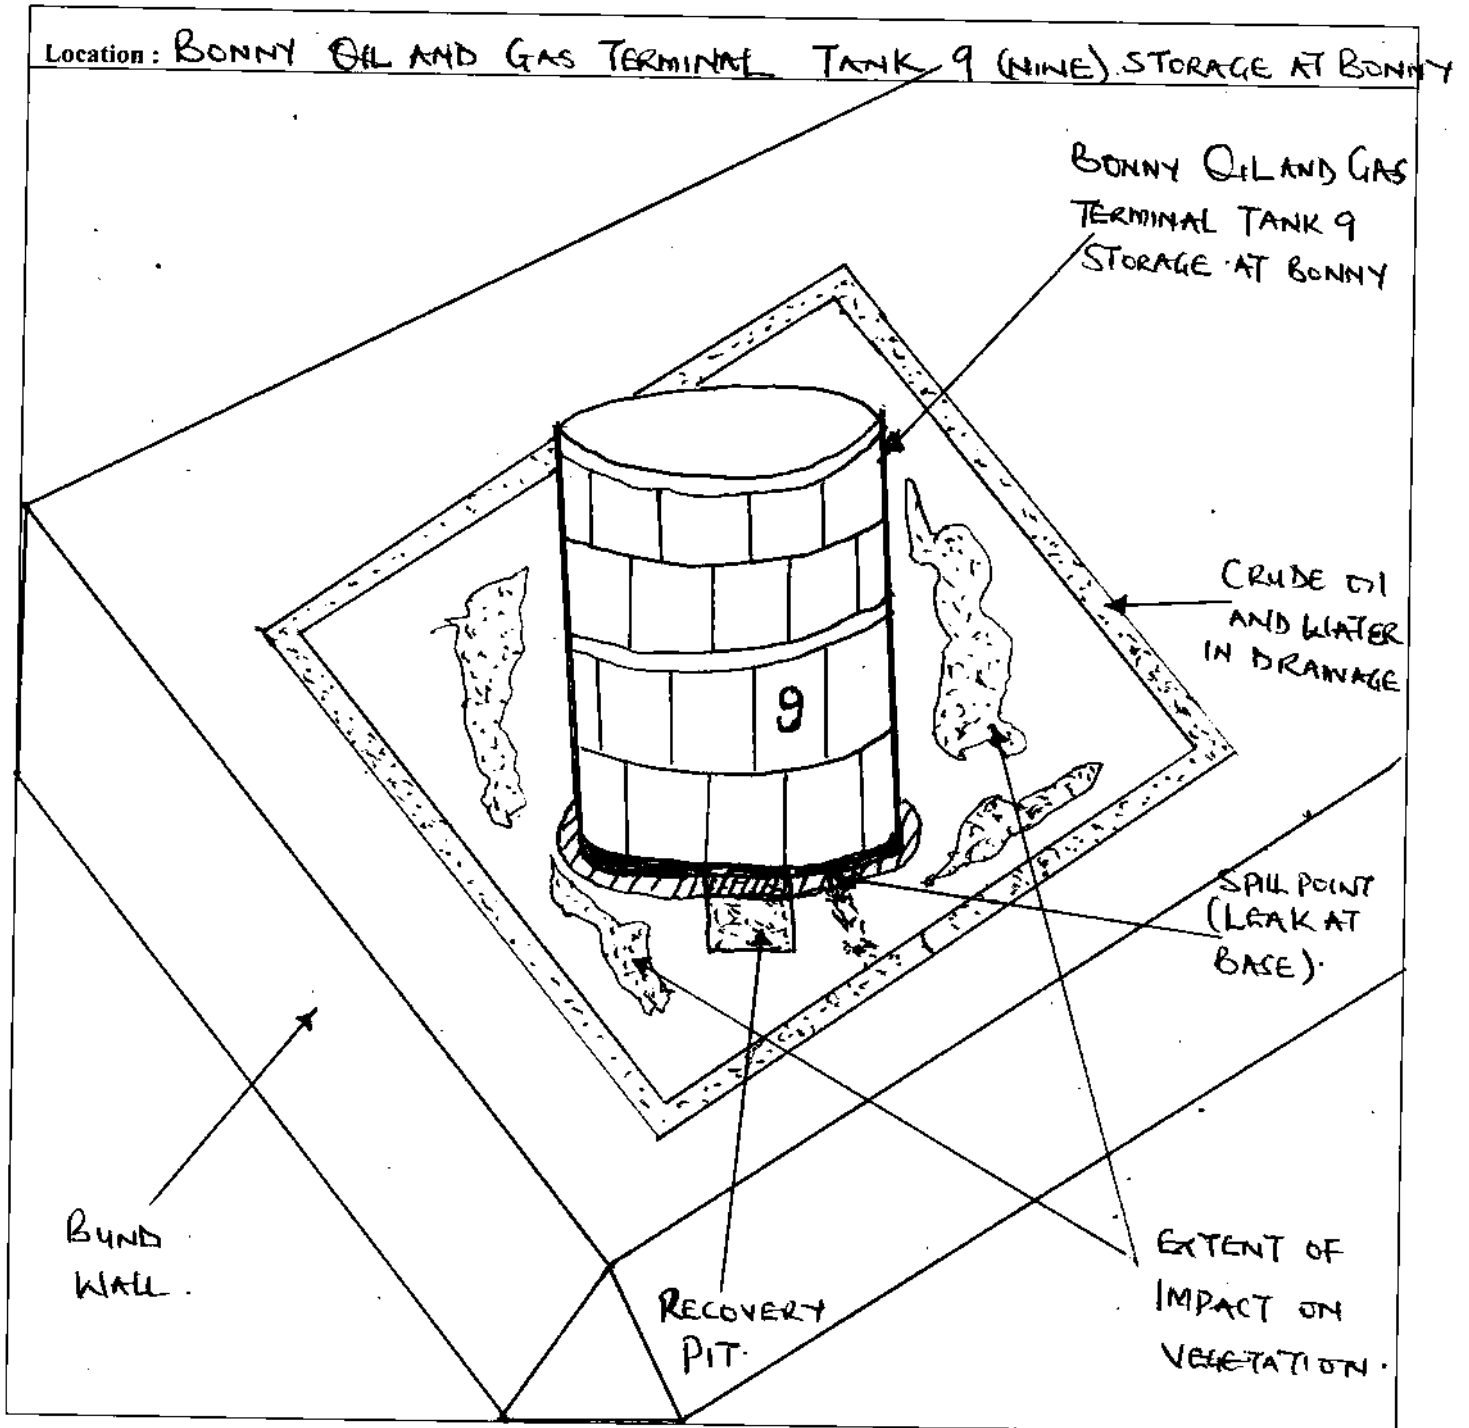 Location : BONNY OIL AND GAS TERMINAL TANK 9 (NINE) STORAGE AT BONNY
BONNY OIL AND GAS
TERMINAL TANK 9
STORAGE AT BONNY
CRUDE OIL
AND WATER
IN DRAINAGE
9
SPILL POINT
(LEAK AT
BASE).
BUND
WALL.
RECOVERY
PIT.
EXTENT OF
IMPACT ON
VEGETATION.